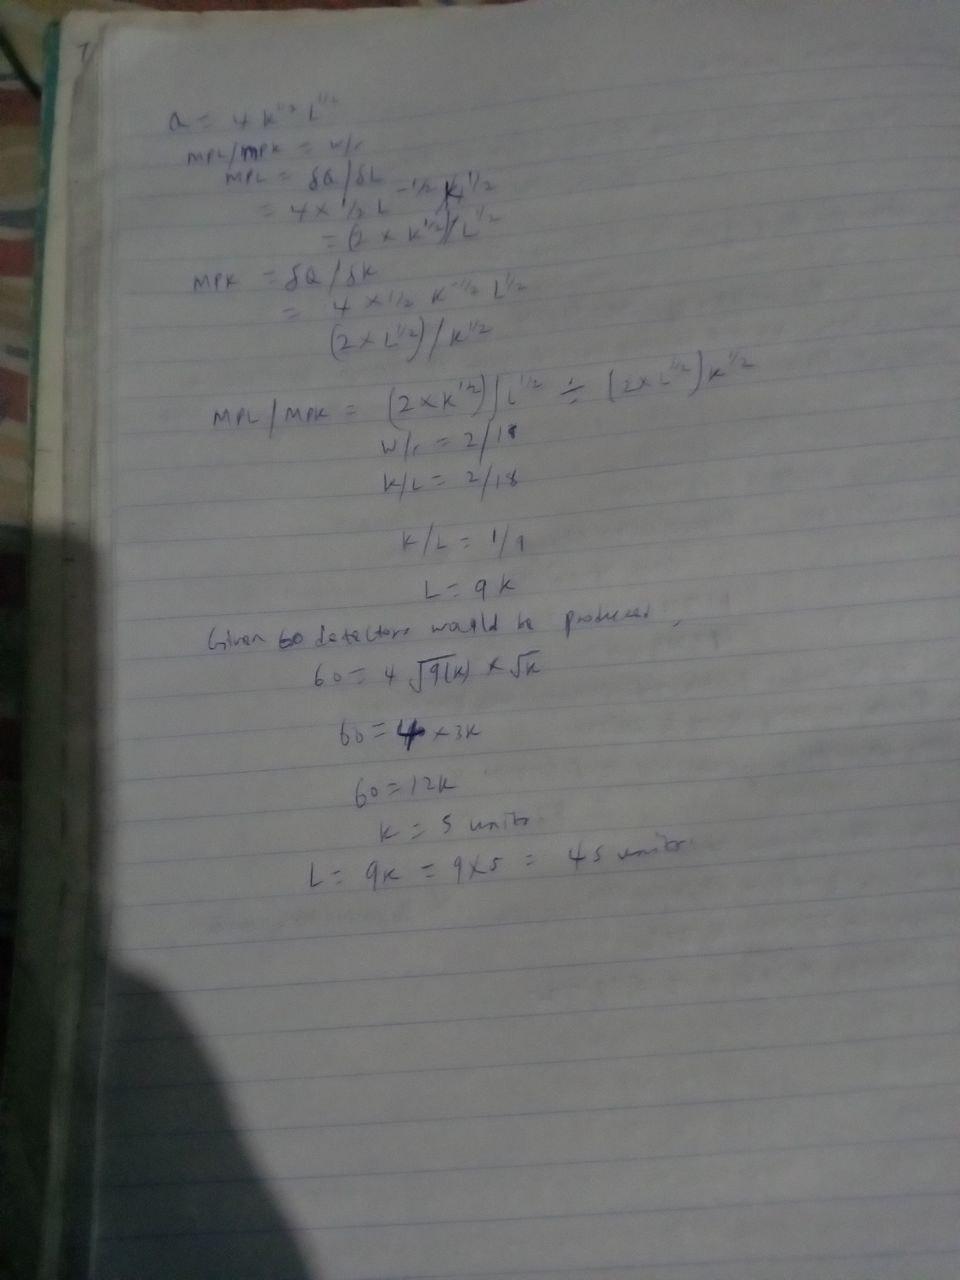 Q = 4 K^1/2 L^1/2
MPL/MPK = w/r
MPL = δQ/δL
= 4 × 1/2 L^-1/2 K^1/2
= (2 × K^1/2)/L^1/2
MPK = δQ/δK
= 4 × 1/2 K^-1/2 L^1/2
(2 × L^1/2)/K^1/2
MPL/MPK = (2 × K^1/2)/L^1/2 ÷ (2 × L^1/2) K^1/2
w/r = 2/18
K/L = 2/18
K/L = 1/9
L = 9K
Given 60 detectors would be produced,
60 = 4 √9(K) × √K
60 = 4 × 3K
60 = 12K
K = 5 units.
L = 9K = 9×5 = 45 units.